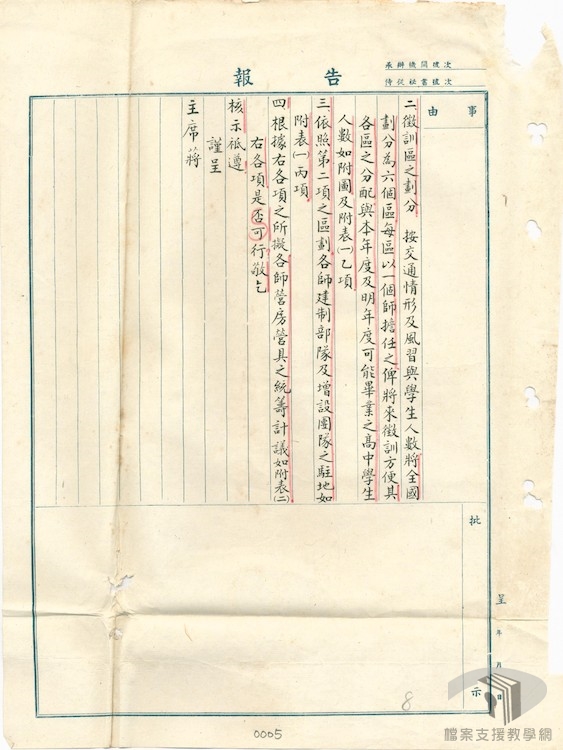 承辦機關號次
侍從祕書號次
報告
事由
二徵訓區之劃分　按交通情形及風習與學生人數將全國
劃分為六個區每區以一個師擔任之俾將來徵訓方便其
各區之分配與本年度及明年度可能畢業之高中學生
人數如附圖及附表㈠乙項
三依照第二項之區劃各師建制部隊及增設團隊之駐地如
附表㈠丙項
四根據右各項之所擬各師營房營具之統籌計議如附表㈡
右各項是否可行敬乞
核示祗遵
謹呈
主席蔣
批示
呈　年　月　日
8
0005
檔案支援教學網